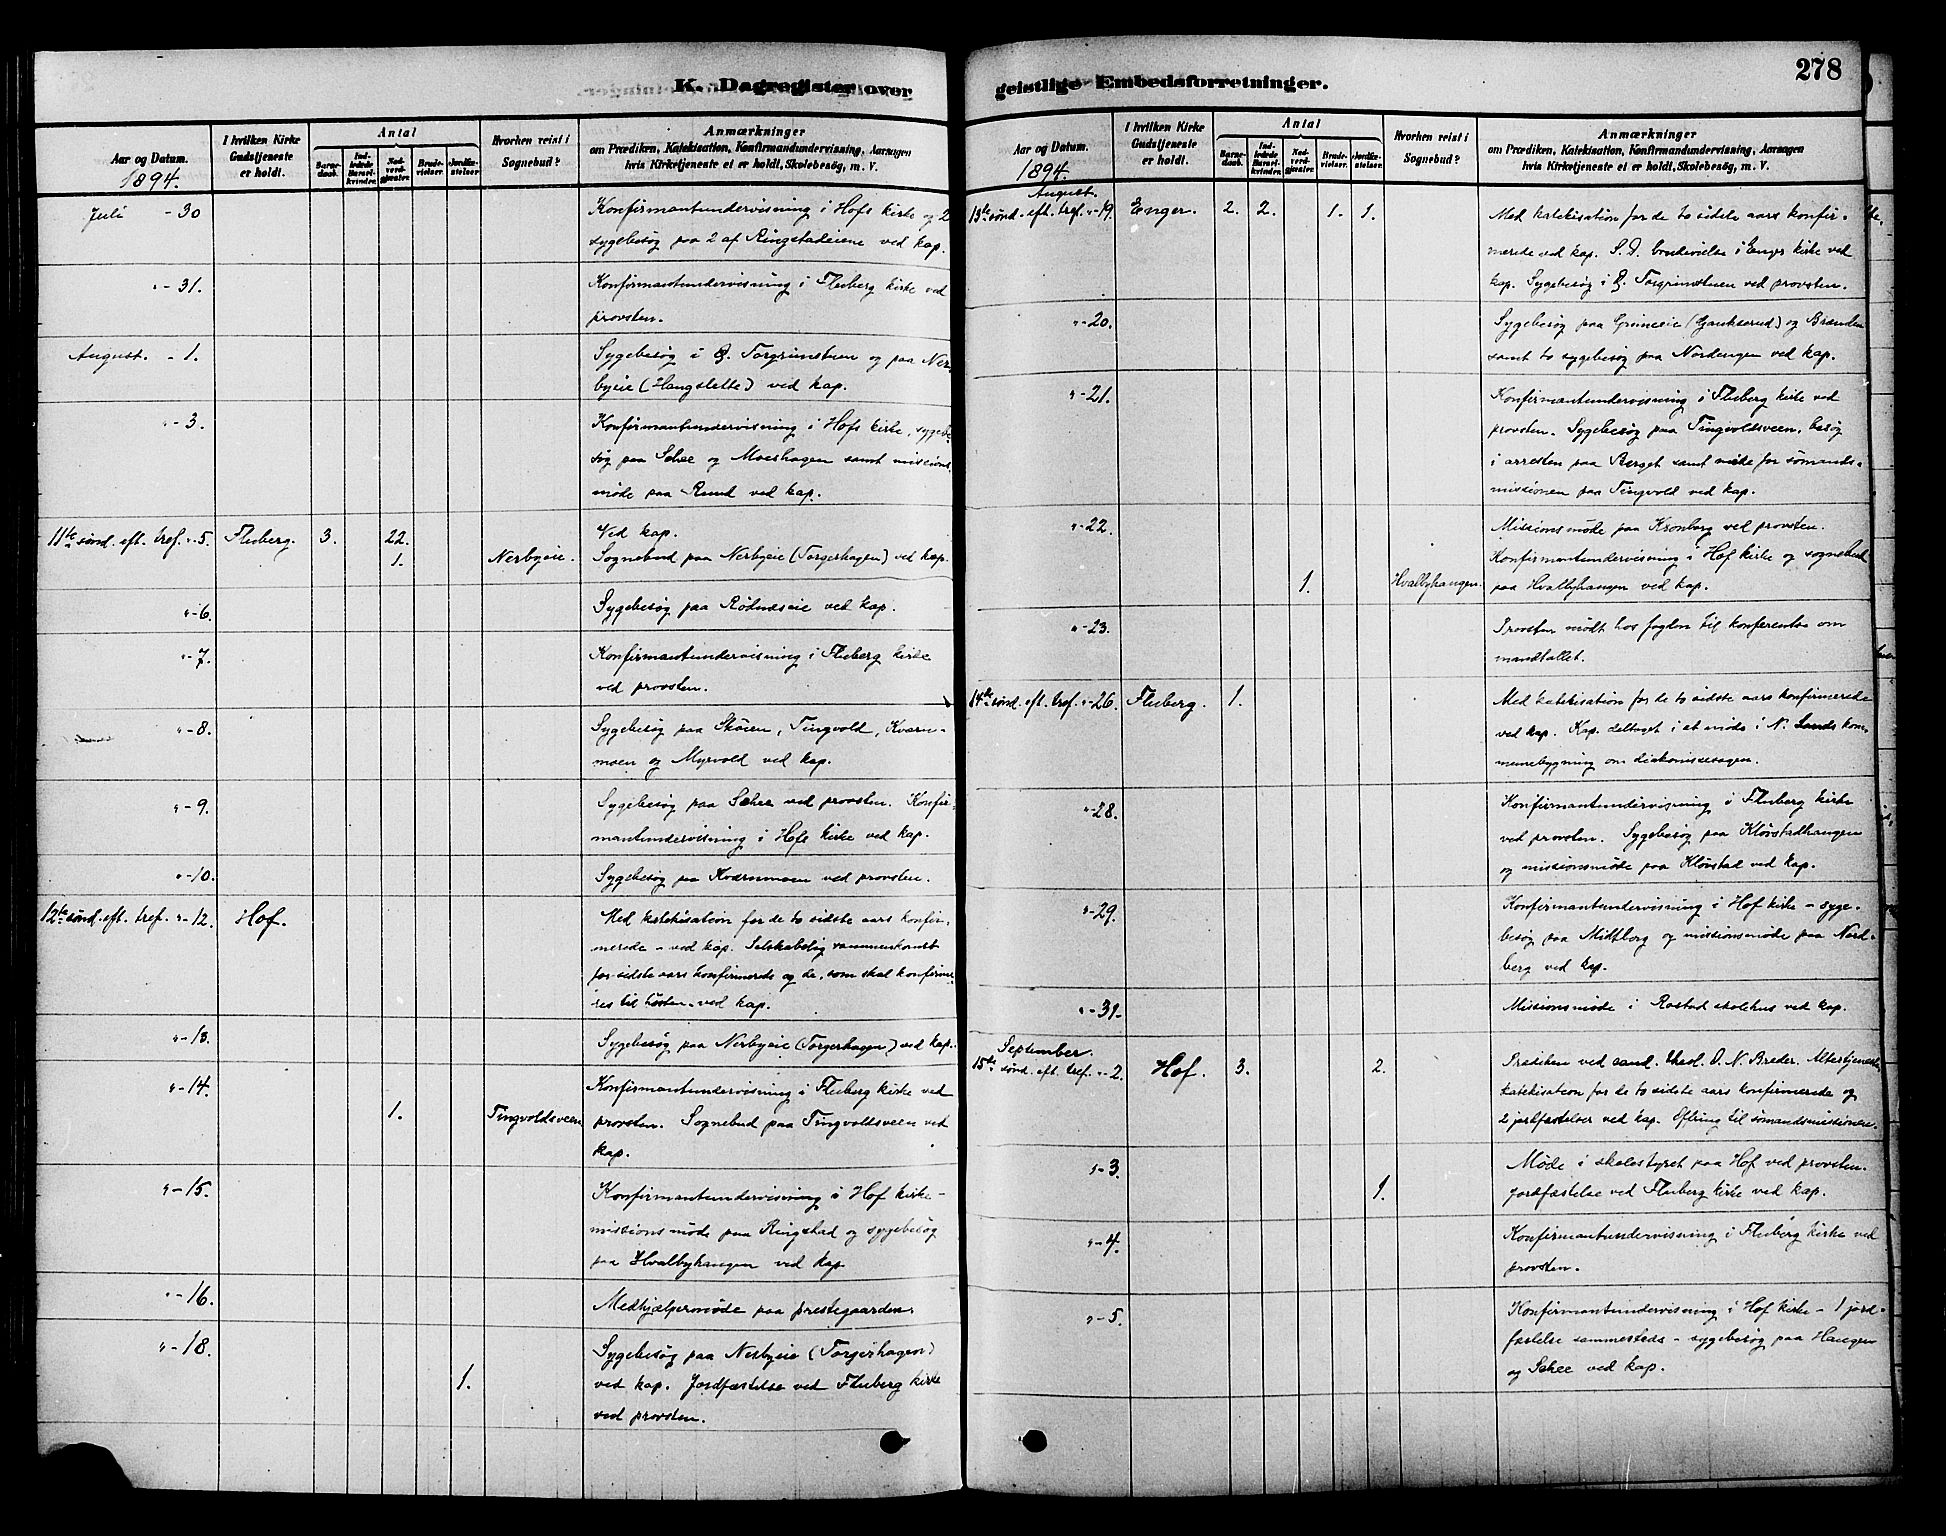 K. Dagregister over
Aar og Datum.
1894.
I hvilken Kirke
Gudstjeneste
er holdt.
Antal
Barne-
daab.
Ind-
ledede
Barsel-
kvinder.
Nad-
verd-
gjæster.
Brude-
vielser.
Jordfæ-
stelser.
Hvorhen reist i
Sognebud?
Anmærkninger
om Prædiken, Katekisation, Konfirmandundervisning, Aarsagen
hvis Kirketjeneste ei er holdt, Skolebesøg, m. V.
Juli - 30
Konfirmantundervisning i Hofs kirke og 2
sygebesøg paa 2 af Ringstadeiene ved kap.
"- 31.
Konfirmantundervisning i Fluberg kirke ved
provsten.
August. - 1.
Sygebesøg i Ø. Torgrimstuen og paa Ner-
byeie (Haugslette) ved kap.
"- 3.
Konfirmantundervisning i Hofs kirke, sygebe
søg paa Schee og Moeshagen samt missions
møde paa Rund ved kap.
11te sønd. eft. tref. "- 5. Fluberg. 3. 22. Ved kap.
1. Nerbyeie. Sognebud paa Nerbyeie (Torgerhagen) ved kap.
"- 6. Sygebesøg paa Rødnæseie ved kap.
"- 7. Konfirmantundervisning i Fluberg kirke
ved provsten.
"- 8. Sygebesøg paa Skøien, Tingvold, Kværn-
moen og Myrvold ved kap.
"- 9. Sygebesøg paa Schee ved provsten. Konfir-
mantundervisning i Hofs kirke ved kap.
"- 10. Sygebesøg paa Kværnmoen ved provsten.
12te sønd. eft. tref. "- 12. Hof. Med katekisation for de to sidste aars konfir-
merede - ved kap. Selskabelig sammenkomst
for sidste aars konfirmerede og de, som skal konfirme
res til høsten - ved kap.
"- 13. Sygebesøg paa Nerbyeie (Torgerhagen) ved kap.
"- 14. Konfirmantundervisning i Fluberg kirke ved
1. Tingvoldsveen provsten. Sognebud paa Tingvoldsveen ved
kap.
"- 15. Konfirmantundervisning i Hof kirke -
missionsmøde paa Ringstad og sygebesøg
paa Hvalbyhaugen ved kap
"- 16. Medhjælpermøde paa prestegaarden.
"- 18. Sygebesøg paa Nerbyeie (Torgerhagen)
1. ved kap. Jordfæstelse ved Fluberg kirke
ved provsten.
geistlige Embedsforretninger.
278
Aar og Datum.
1894.
I hvilken Kirke
Gudstjeneste
er holdt.
Antal
Barne-
daab.
Ind-
ledede
Barsel-
kvinder.
Nad-
verd-
gjæster.
Brude-
vielser.
Jordfæ-
stelser.
Hvorhen reist i
Sognebud?
Anmærkninger
om Prædiken, Katekisation, Konfirmandundervisning, Aarsagen
hvis Kirketjeneste ei er holdt, Skolebesøg, m. V.
August.
13te sønd. eft. tref. "- 19. Enger. 2. 2. 1. 1. Med katekisation for de to sidste aars konfir-
merede ved kap. S. D. brudevielse i Enger kirke ved
kap. Sygebesøg i Ø. Torgrimstuen ved provsten.
"- 20. Sygebesøg paa (Gaukserud) og Brænden
samt to sygebesøg paa Nordengen ved kap.
"- 21. Konfirmantundervisning i Fluberg kirke ved
provsten. Sygebesøg paa Tingvoldsveen, besøg
i arresten paa Berget samt møde for sømands-
missionen paa Tingvold ved kap.
"- 22. Missionsmøde paa Kronborg ved provsten.
Konfirmantundervisning i Hof kirke og sognebud
1. Hvalbyhaugen. paa Hvalbyhaugen ved kap.
"- 23. Provsten mødt hos fogden til konferentse om
mandtallet.
14de sønd. eft. tref. "- 26. Fluberg. 1. Med katekisation for de to sidste aars konfirmerede
ved kap. Kap. deltaget i et møde i N. Lands kom-
munebygning om diakonissesagen.
"- 28. Konfirmantundervisning i Fluberg kirke
ved provsten. Sygebesøg paa Kløvstadhaugen
og missionsmøde paa Kløvstad ved kap.
"- 29. Konfirmantundervisning i Hof kirke - syge-
besøg paa Midtborg og missionsmøde paa Nord-
berg ved kap.
"- 31. Missionsmøde i Rostad skolehus ved kap.
September.
15de sønd. eft. tref. "- 2. Hof. 3. 2. Prediken ved cand. theol. O. N. Breder. Altertjeneste,
katekisation for de to sidste aars konfirmerede og
2 jordfæstelser ved kap. Ofring til sømandsmissionen.
"- 3. Møde i skolestyret paa Hof ved provsten.
1. Jordfæstelse ved Fluberg kirke ved kap.
"- 4. Konfirmantundervisning i Fluberg kirke ved
provsten.
"- 5. Konfirmantundervisning i Hof kirke - 1 jord-
fæstelse sammesteds - sygebesøg paa Haugen
og Schee ved kap.